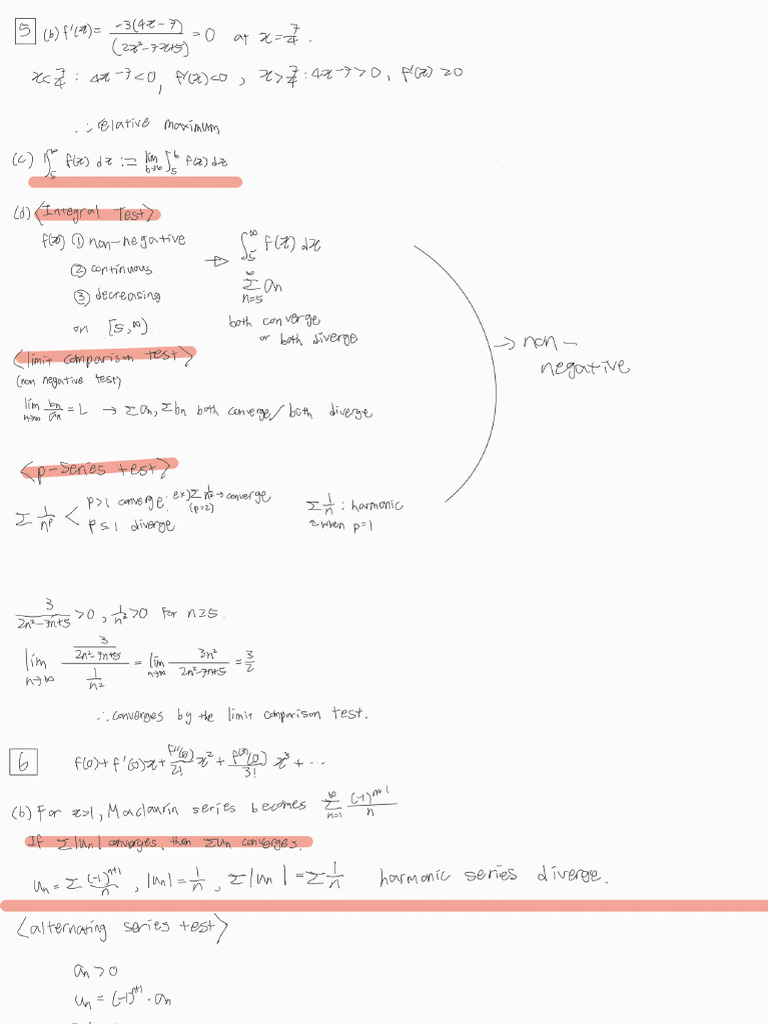 5 (b) f'(x) = -3(4x-7) / (2x²-7x+5) = 0 at x = 7/4 .
x < 7/4 : 4x-7<0, f'(x)<0 , x > 7/4 : 4x-7 > 0, f'(x) ≥0
∴ relative maximum
(c) ∫_5^∞ f(x) dx := lim_{b→∞} ∫_5^b f(x) dx
(d) <Integral Test>
f(x) ① non-negative
② continuous
③ decreasing
on [5, ∞).
→ ∫_5^∞ f(x) dx
∞Σn=5 an
both converge
or both diverge
<limit comparison test>
(non negative test)
lim n→∞ bn/an = L → Σan, Σbn both converge/both diverge
→ non-
negative
<p-series test>
Σ 1/n^p < p>1 converge: ex) Σ 1/n² → converge
(p=2)
p≤1 diverge
Σ 1/n : harmonic
~when p=1
3/(2n²-7n+5) >0 , 1/n² >0 for n≥5.
lim n→∞ (3/(2n²-7n+5)) / (1/n²) = lim n→∞ 3n²/(2n²-7n+5) = 3/2
∴ converges by the limit comparison test.
6 f(0)+f'(0)x+ f''(0)/2! x² + f⁽³⁾(0)/3! x³ + ...
(b) For x>1, Maclaurin series becomes ∞Σn=1 (-1)^(n+1)/n
If Σ|un| converges, then Σun converges.
un = Σ (-1)^(n+1)/n , |un| = 1/n , Σ|un| = Σ 1/n harmonic series diverge.
<alternating series test>
an > 0
un = (-1)^(n+1) · an